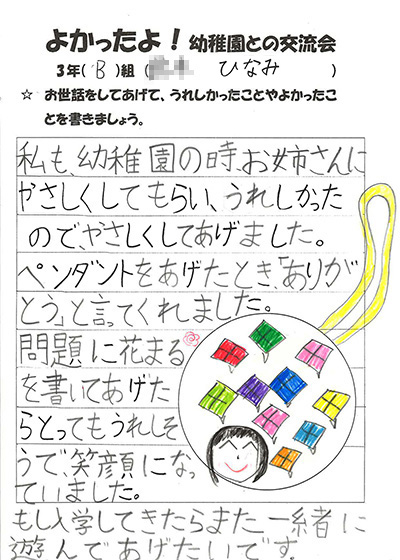 よかったよ！幼稚園との交流会
3年(B)組 ( ひなみ )
☆ お世話をしてあげて、うれしかったことやよかったこ
とを書きましょう。
私も、幼稚園の時、お姉さんに
やさしくしてもらい、うれしかった
ので、やさしくしてあげました。
ペンダントをあげたとき、「ありが
とう」と言ってくれました。
問題に花まる
を書いてあげた
らとってもうれしそ
うで、笑顔になっ
ていました。
もし入学してきたらまた一緒に
遊んであげたいです。